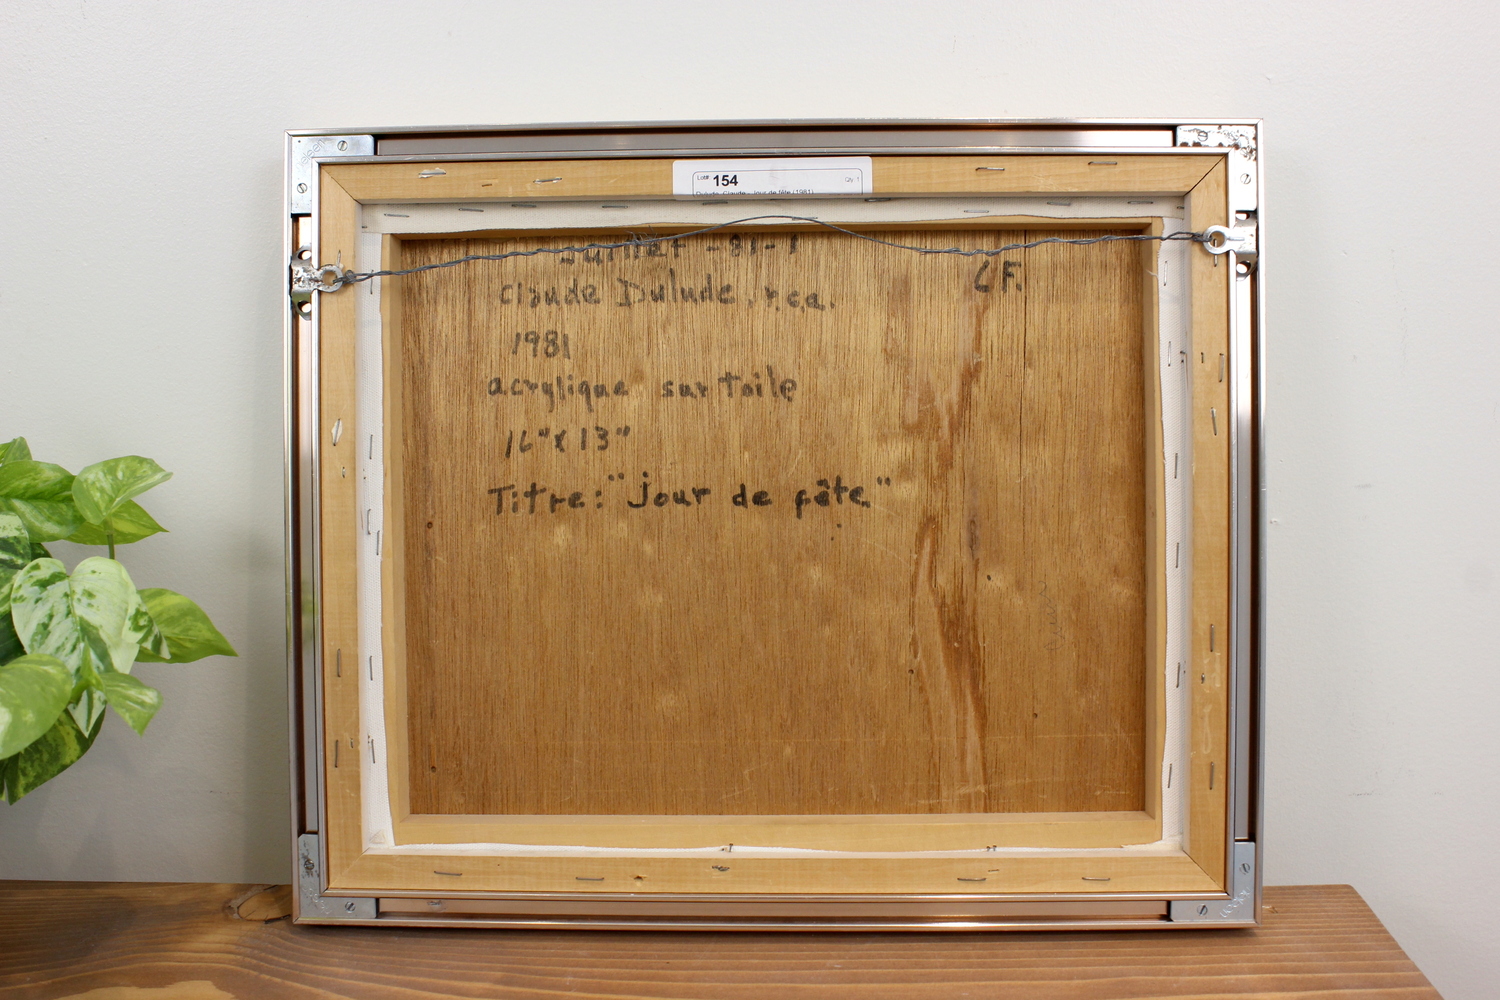 Lot# 154
Qty: 1
Dulude, Claude - Jour de fête (1981)
Juillet -81-1
C.F.
Claude Dulude, r.c.a.
1981
acrylique sur toile
16" x 13"
Titre: "jour de fête"